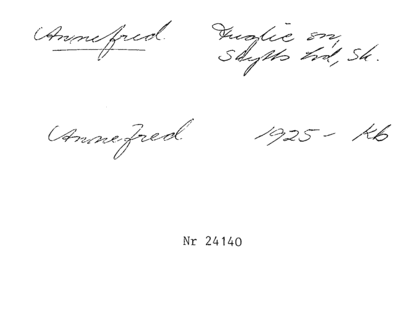 Annefred Fuglie sn,
Skytts hd, Sk.
Annefred 1925 - Kb
Nr 24140